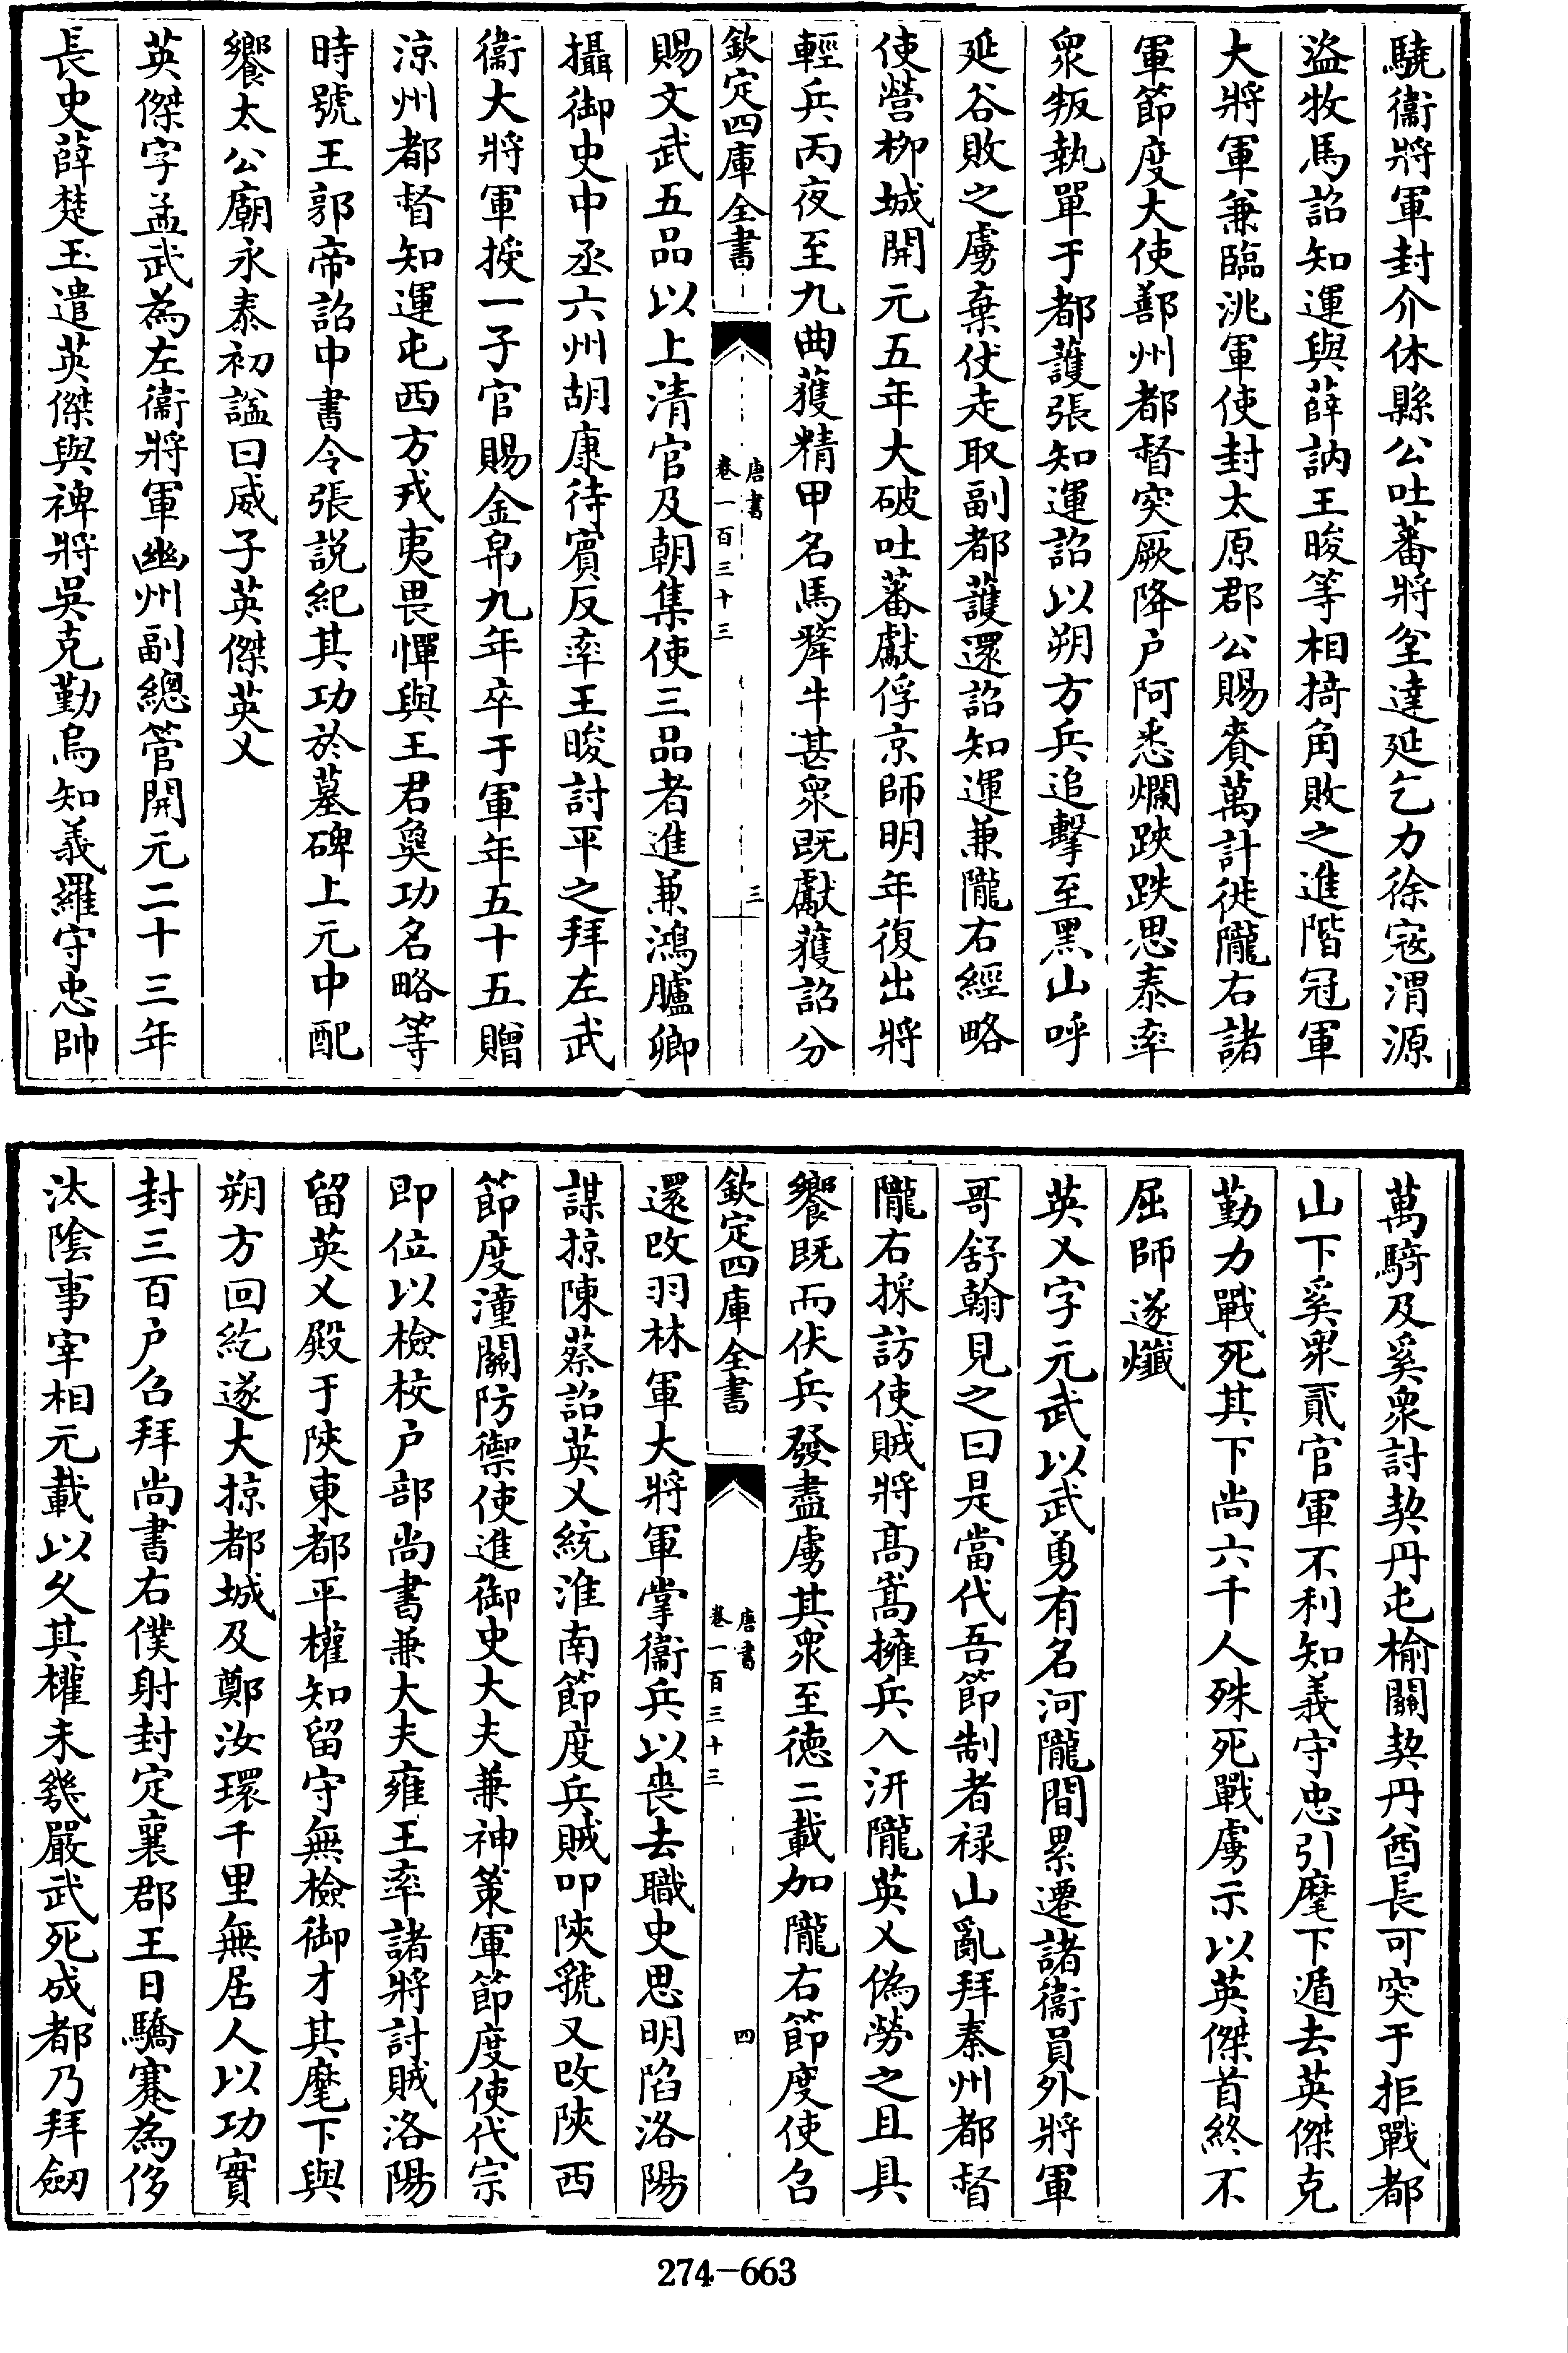 驍衞將軍封介休縣公吐蕃將坌達延乞力徐寇渭源
盜牧馬詔知運與薛訥王晙等相掎角敗之進階冠軍
大將軍兼臨洮軍使封太原郡公賜賚萬計徙隴右諸
軍節度大使鄯州都督突厥降户阿悉爛䟦跌思泰率
衆叛執單于都䕶張知運詔以朔方兵追擊至黑山呼
延谷敗之虜棄仗走取副都䕶還詔知運兼隴右經略
使營柳城開元五年大破吐蕃獻俘京師明年復出將
輕兵丙夜至九曲獲精甲名馬犛牛甚衆既獻獲詔分
欽定四庫全書
唐書
卷一百三十三
三
賜文武五品以上清官及朝集使三品者進兼鴻臚卿
攝御史中丞六州胡康待賓反率王晙討平之拜左武
衞大將軍授一子官賜金帛九年卒于軍年五十五贈
涼州都督知運屯西方戎夷畏憚與王君㚟功名略等
時號王郭帝詔中書令張説紀其功於墓碑上元中配
饗太公廟永泰初諡曰威子英傑英乂
英傑字孟武為左衞將軍幽州副總管開元二十三年
長史薛楚玉遣英傑與裨將吳克勤烏知義羅守忠帥
萬騎及奚衆討契丹屯榆關契丹酋長可突于拒戰都
山下奚衆貳官軍不利知義守忠引麾下遁去英傑克
勤力戰死其下尚六千人殊死戰虜示以英傑首終不
屈師遂殲
英乂字元武以武勇有名河隴間累遷諸衞員外將軍
哥舒翰見之曰是當代吾節制者禄山亂拜秦州都督
隴右採訪使賊將髙嵩擁兵入汧隴英乂偽勞之且具
饗既而伏兵發盡虜其衆至徳二載加隴右節度使召
欽定四庫全書
唐書
卷一百三十三
四
還改羽林軍大將軍掌衞兵以喪去職史思明陷洛陽
謀掠陳蔡詔英乂統淮南節度兵賊叩陜虢又改陜西
節度潼關防禦使進御史大夫兼神策軍節度使代宗
即位以檢校户部尚書兼大夫雍王率諸將討賊洛陽
留英乂殿于陜東都平權知留守無檢御才其麾下與
朔方回紇遂大掠都城及鄭汝環千里無居人以功實
封三百户召拜尚書右僕射封定襄郡王日驕蹇為侈
汰陰事宰相元載以久其權未幾嚴武死成都乃拜劒
274-663